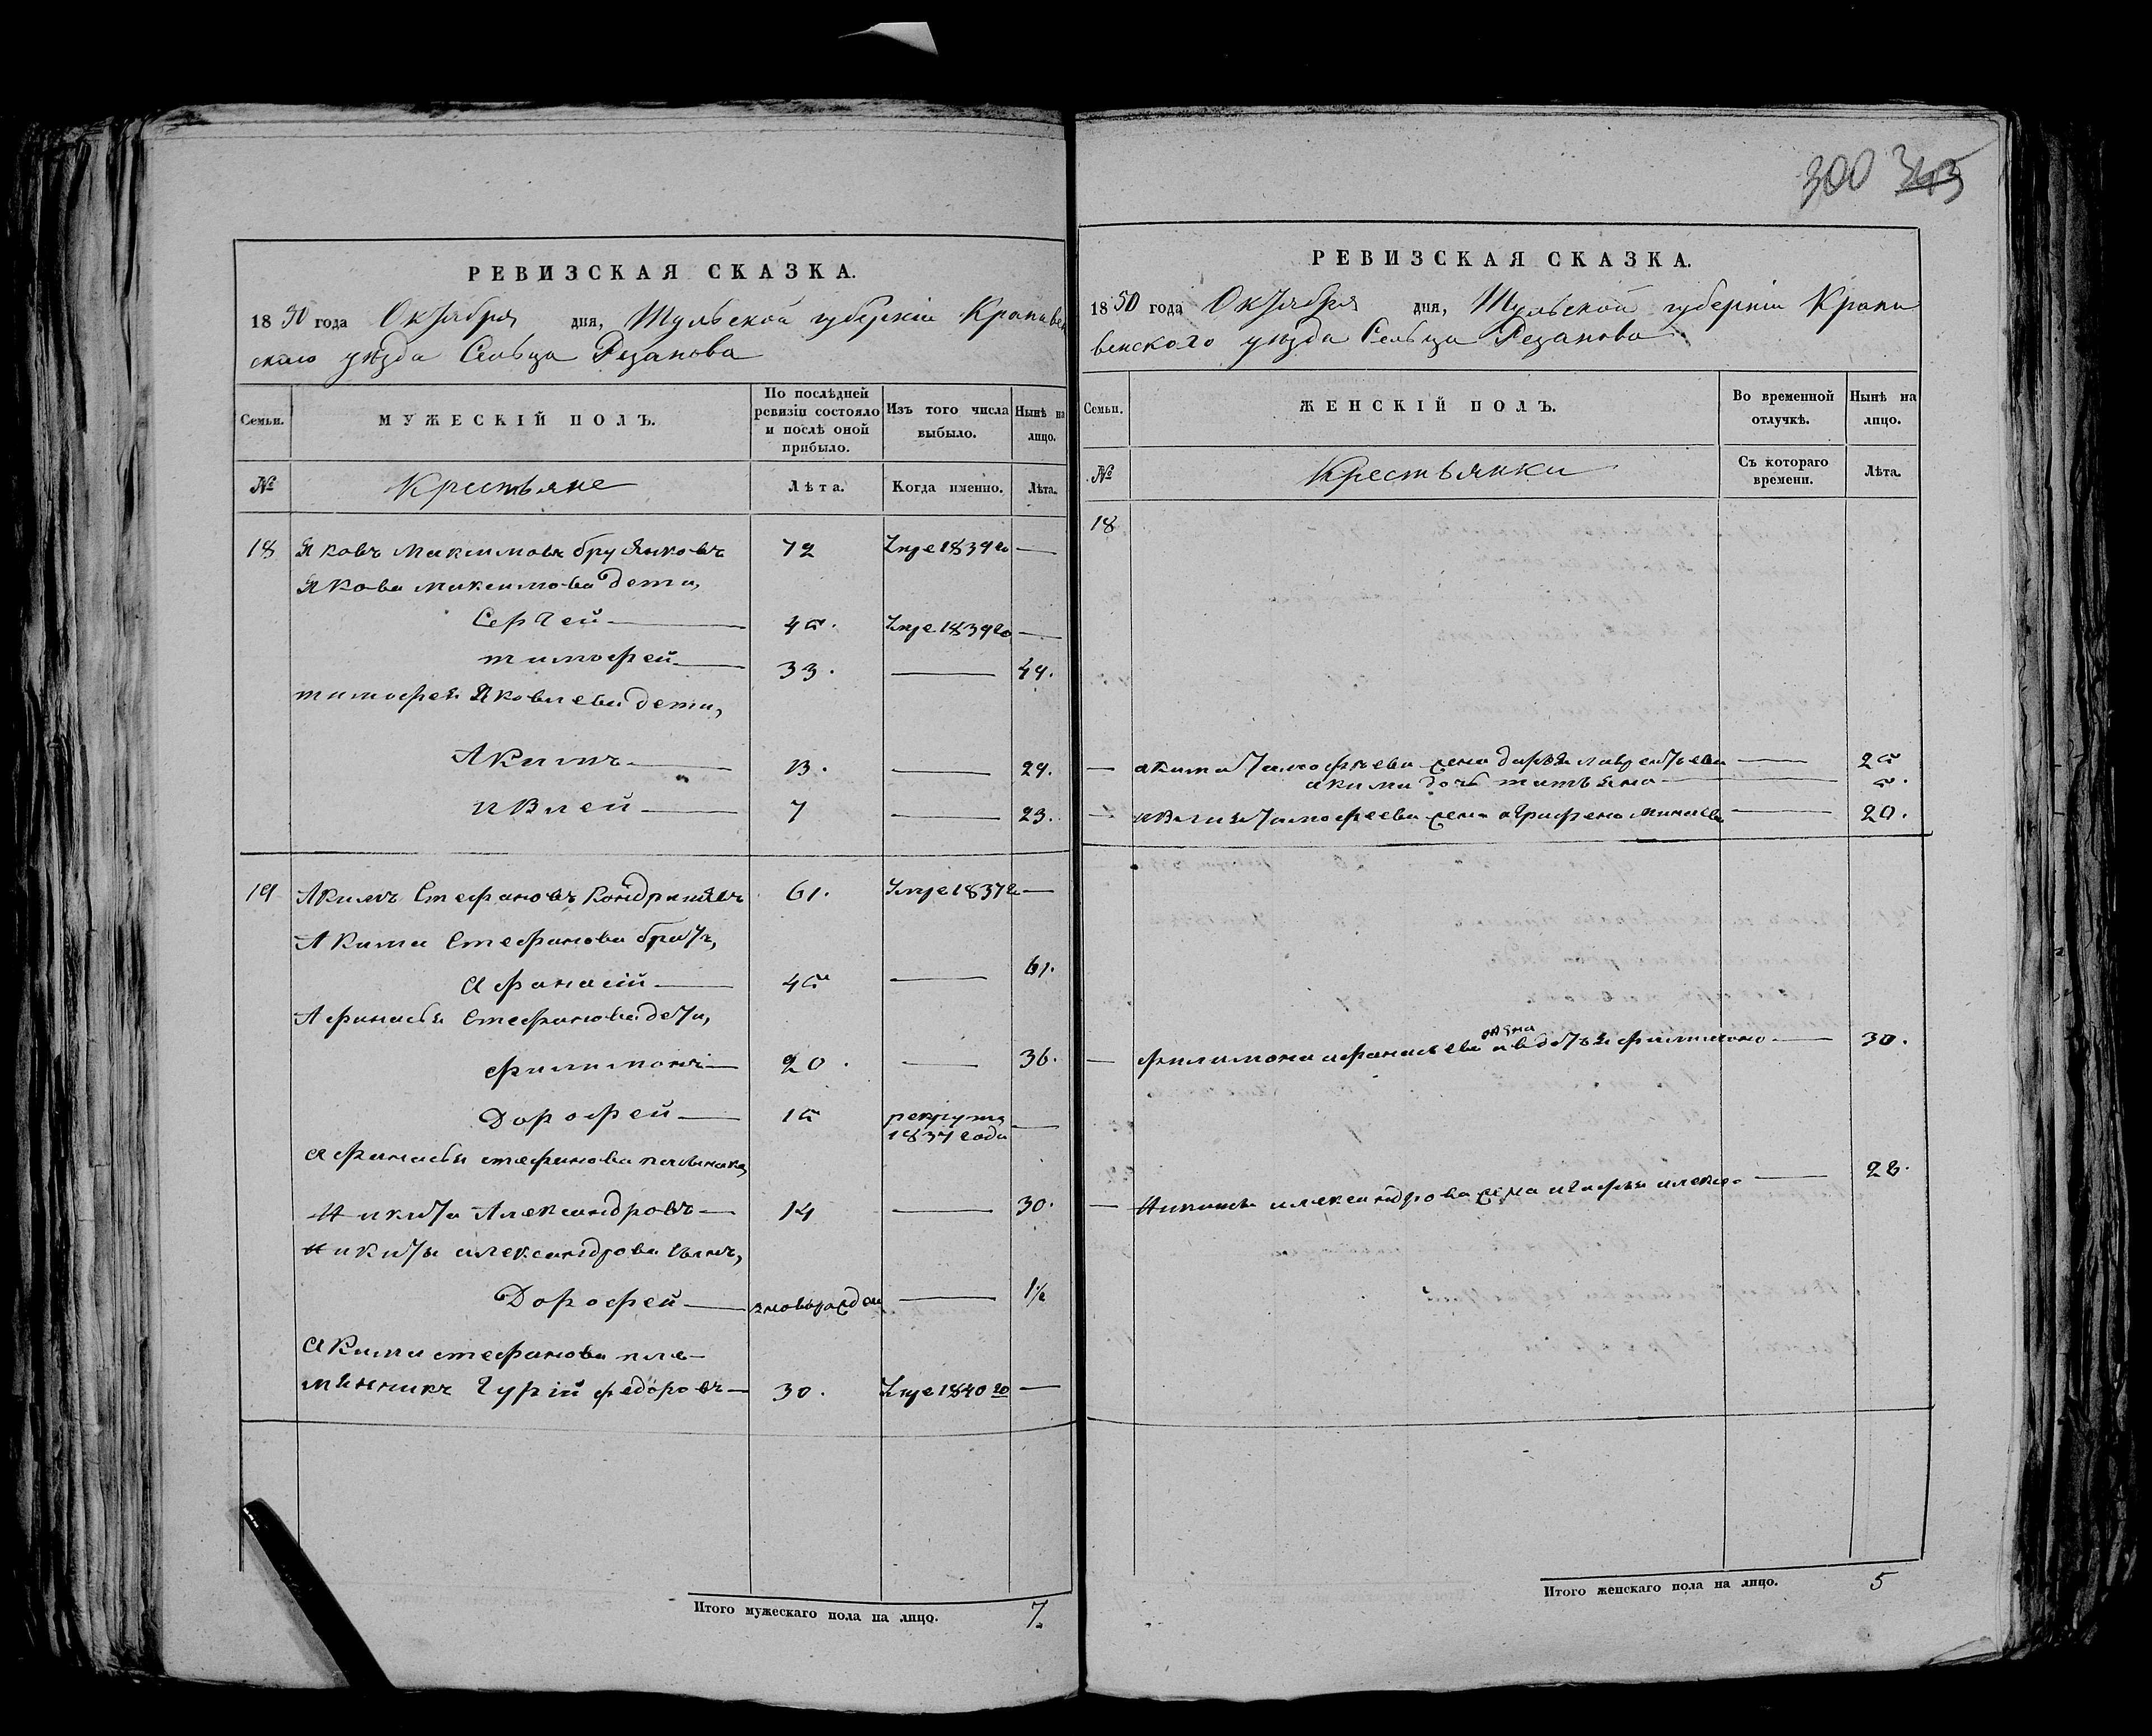 300 345
РЕВИЗСКАЯ СКАЗКА.
1850 года Октября дня, Тульской губерніи Крапивен
скаго уѣзда Сельца Резанова
Семьи.
МУЖЕСКІЙ ПОЛЪ.
По послѣдней ревизіи состояло и послѣ оной прибыло.
Изъ того числа выбыло.
Нынѣ на лицо.
№
Крестьяне
Лѣта.
Когда именно.
Лѣта.
18 Яковъ Максимовъ 72 1839го —
Якова максимова дети,
Сергей — 45. 1839го —
тимофей — 33. — 49.
тимофея Яковлева дети,
Акимъ — 13. — 29.
ивлей — 7 — 23.
19 Акимъ Стефановъ 61. 1837го —
Акима Стефанова братъ,
Афанасій — 45 — 61.
Афанасья Стефанова дети,
филимонъ — 20. — 36.
Дорофей — 15 рекруты —
1837 года
Афанасья стефанова
Никита Александровъ — 14 — 30.
Никиты александрова сынъ,
Дорофей — — 1½
Акима стефанова пле—
мянникъ Гурій федоровъ — 30. 1840го —
Итого мужескаго пола на лицо. 7.
РЕВИЗСКАЯ СКАЗКА.
1850 года Октября дня, Тульской губерніи Крапи
венского уѣзда Сельца Резанова
Семьи.
ЖЕНСКІЙ ПОЛЪ.
Во временной отлучкѣ.
Нынѣ на лицо.
№
Крестьянки
Съ котораго времени.
Лѣта.
18
— акима Тимофеева жена дарья лаврентьева — 25
акима дочь татьяна — 5.
— ивлия Тимофеева жена аграфена минаева — 20.
жена
— филимона афанасьева авдотья филимоно — 30.
— Никиты александрова жена агафья алексе — 28.
Итого женскаго пола на лицо. 5